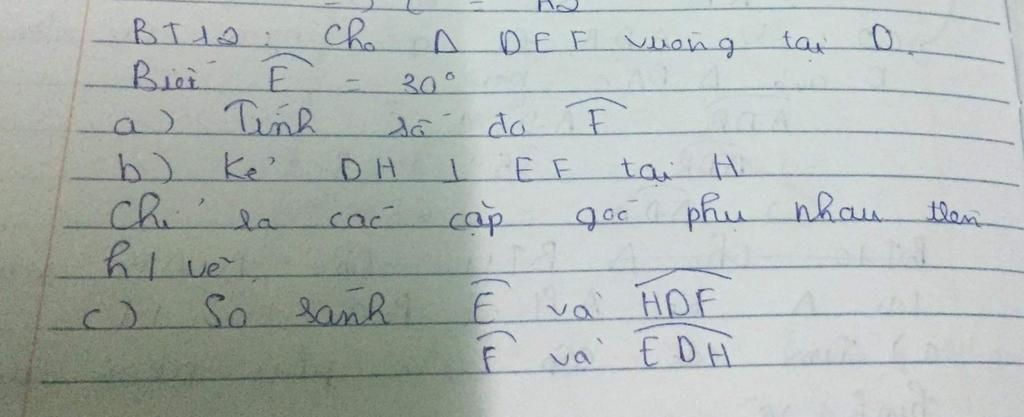 BT12: Cho Δ DEF vuông tại D.
Biết Ê = 30°
a) Tính số đo F̂
b) Kẻ DH ⊥ EF tại H
Chỉ ra các cặp góc phụ nhau trên
h/ vẽ
c) So sánh Ê và HDF̂
F̂ và EDĤ